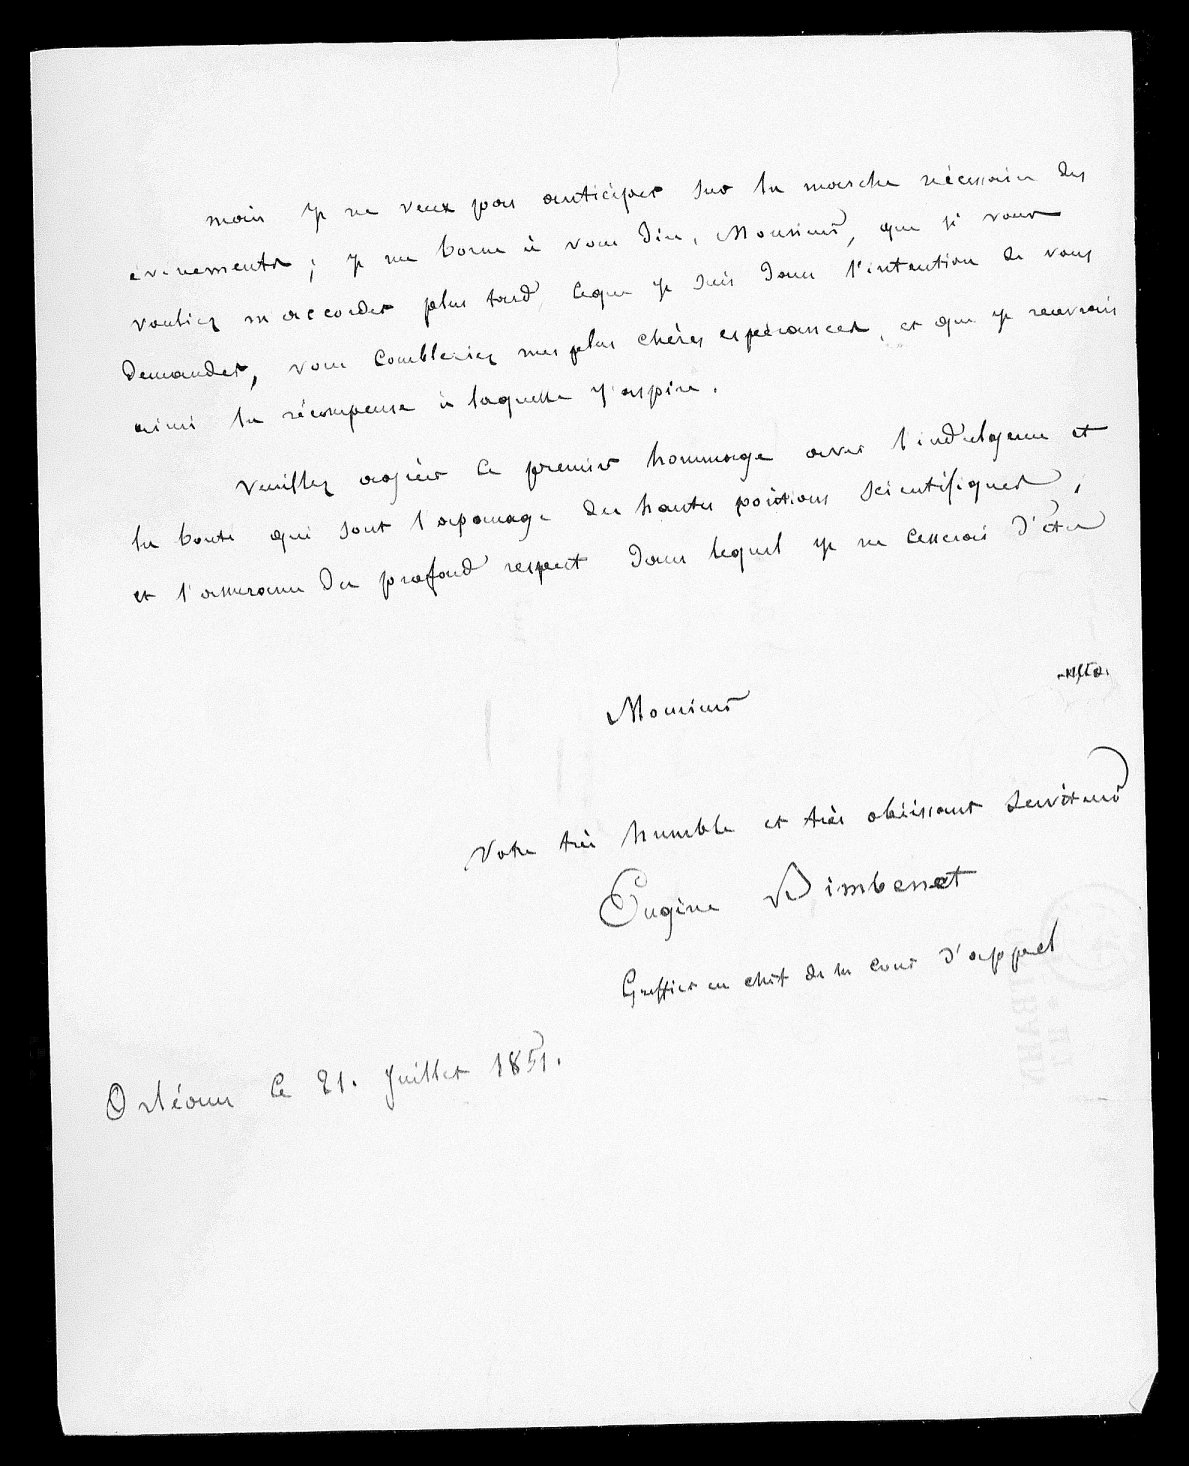 mais je ne veux pas anticiper sur la marche nécessaire des
evenements ; je me borne à vous dire, Monsieur, que si vous
vouliez m'accorder plus tard, ceque je suis dans l'intention de vous
demander, vous combleriez mes plus chères espérances, et que je recevrais
ainsi la récompense à laquelle j'aspire.
Veuillez agréer ce premier hommage avec l'indulgence et
la bonté qui sont l'apanage des hautes positions scientifiques,
et l'assurance du profond respect dans lequel je ne cesserai d'être
Monsieur
Votre très humble et très obéissant serviteur
Eugène Bimbenet
Greffier en chef de la cour d'appel
Orléans le 21. Juillet 1851.